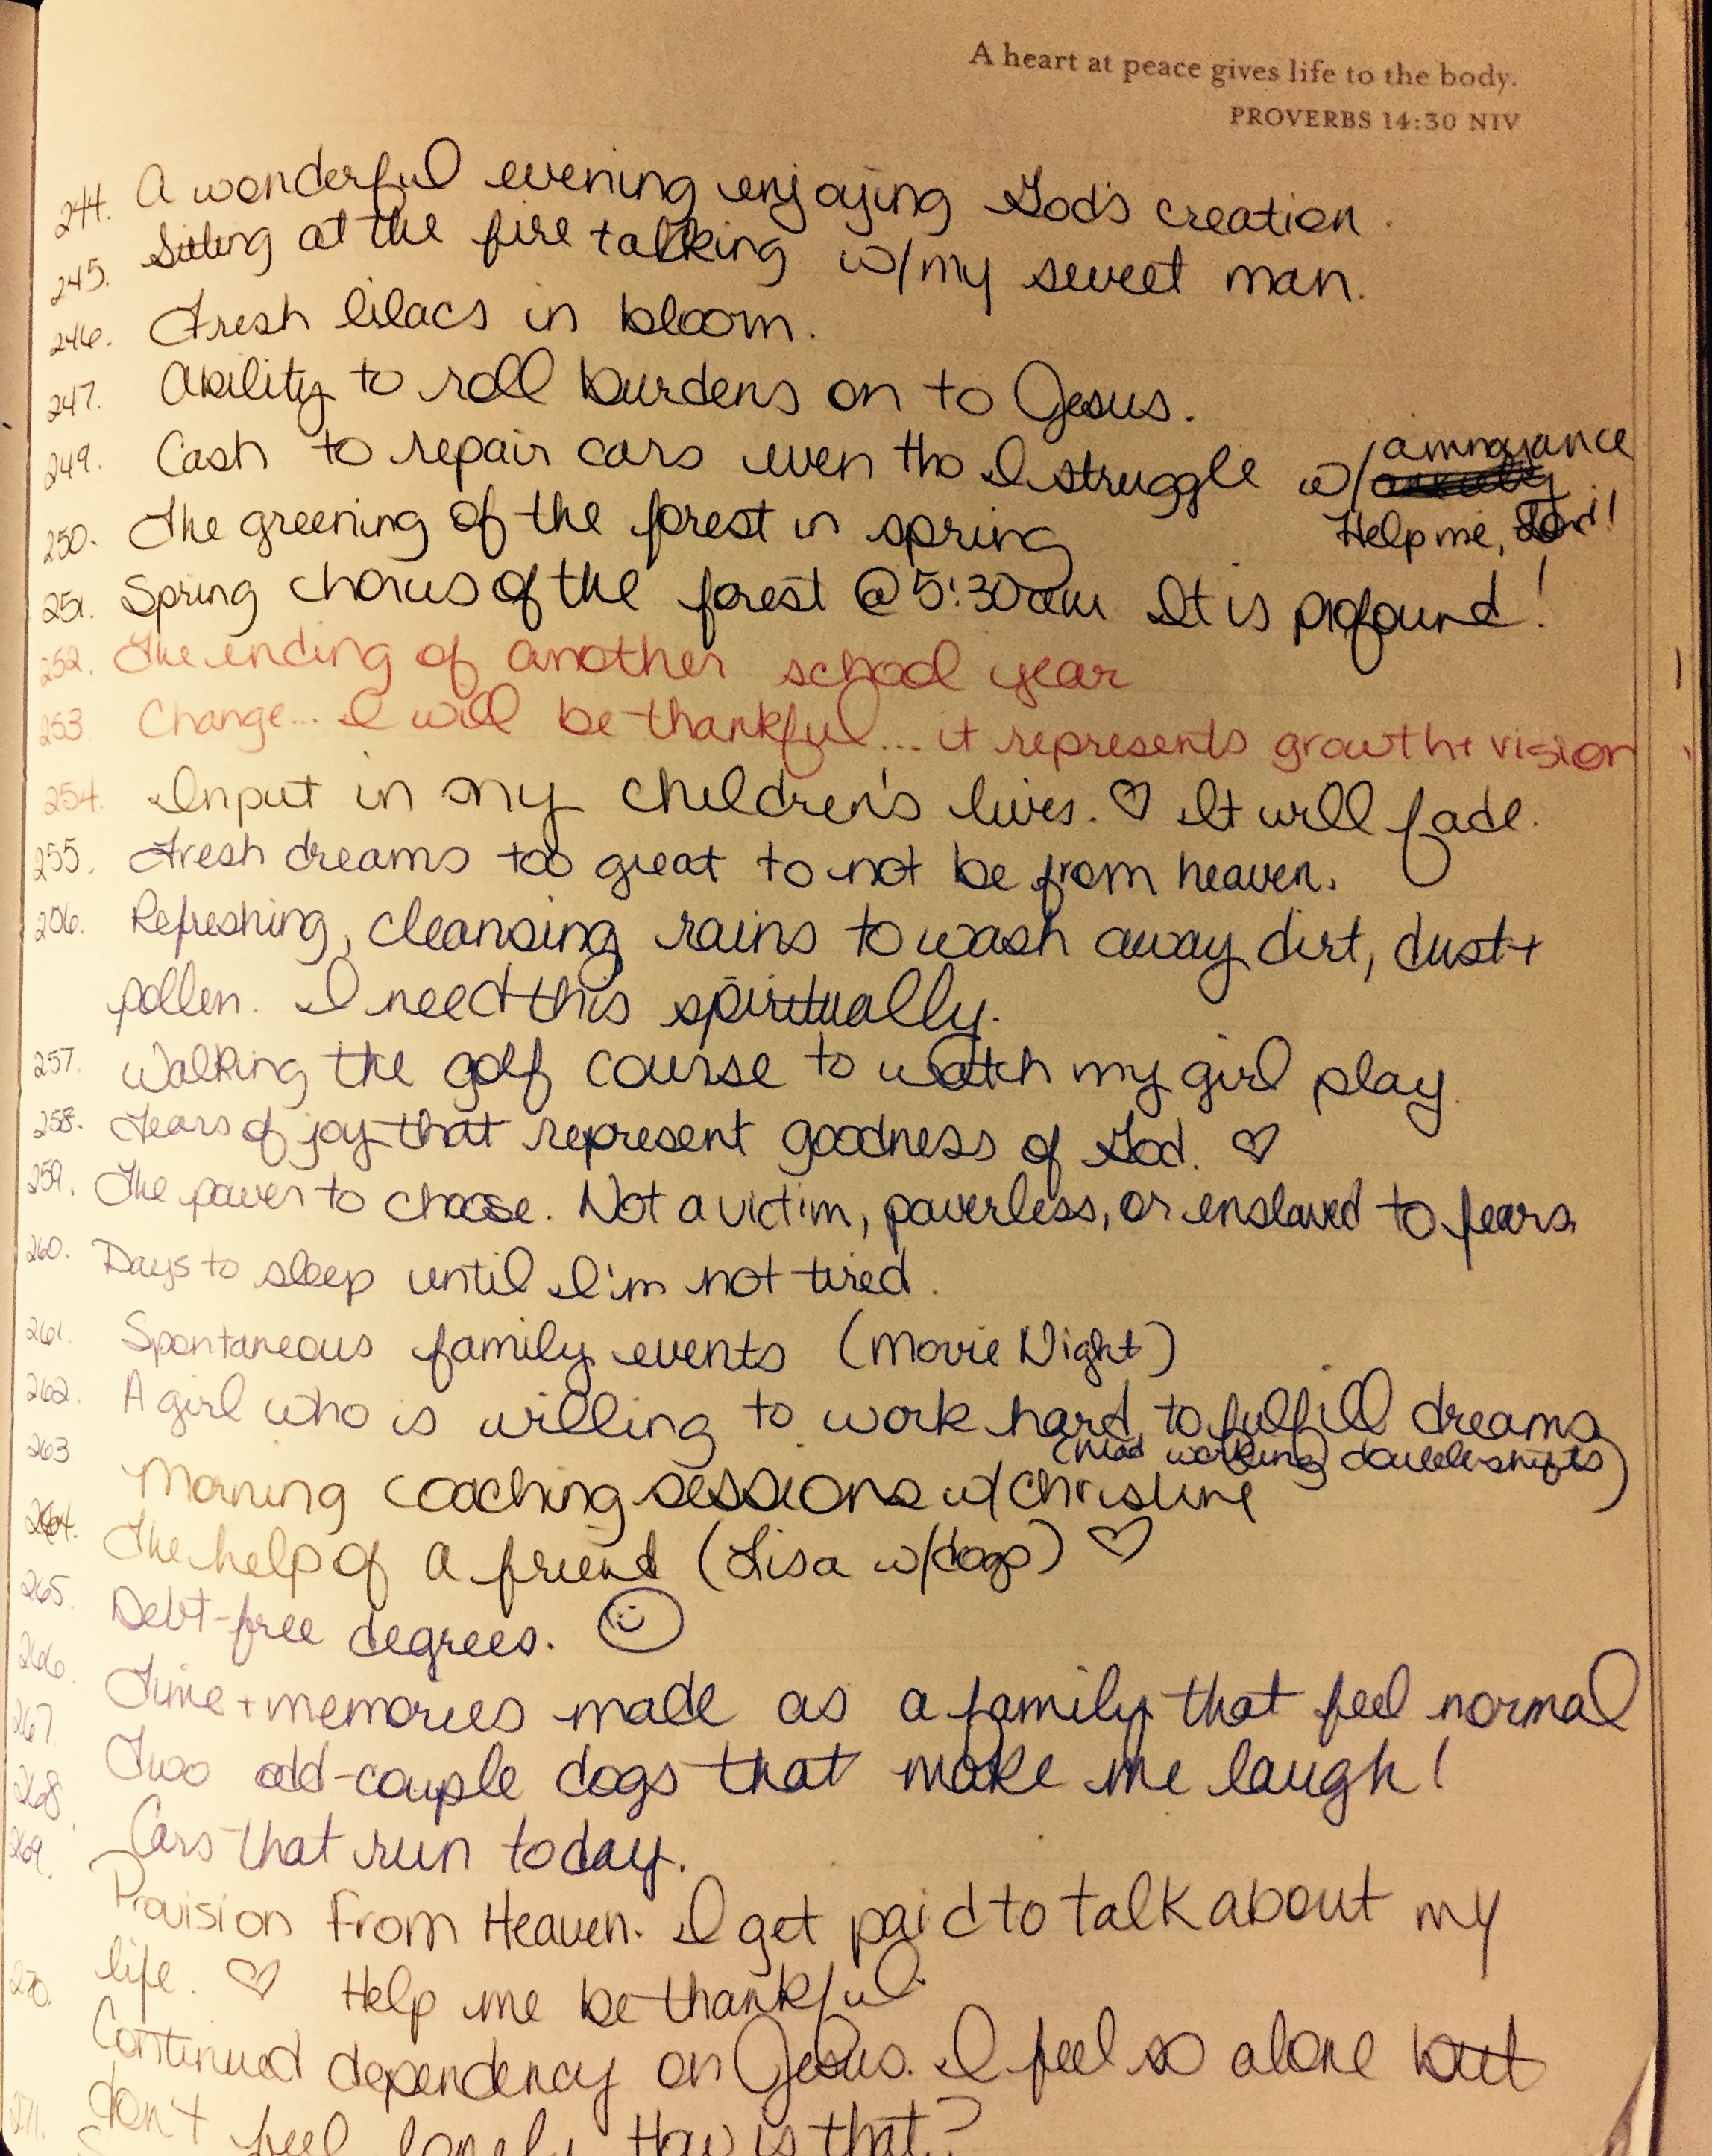 A heart at peace gives life to the body.
PROVERBS 14:30 NIV
244. A wonderful evening enjoying God's creation.
245. Sitting at the fire talking w/my sweet man.
246. Fresh lilacs in bloom.
247. Ability to roll burdens on to Jesus.
249. Cash to repair cars even tho I struggle w/ amnoyance
Help me, Lord!
250. The greening of the forest in spring
251. Spring chorus of the forest @5:30am It is profound!
252. The ending of another school year
253 Change... I will be thankful... it represents growth + vision
254. Input in my children's lives. ♡ It will fade.
255. Fresh dreams too great to not be from heaven.
256. Refreshing, cleansing rains to wash away dirt, dust +
pollen. I need this spiritually.
257. Walking the golf course to watch my girl play.
258. Tears of joy that represent goodness of God. ♡
259. The power to choose. Not a victim, powerless, or enslaved to fears.
260. Days to sleep until I'm not tired.
261. Spontaneous family events (Movie Night)
262. A girl who is willing to work hard to fulfill dreams
(Mad working double shifts)
263 Morning coaching sessions w/ Christine
264. The help of a friend (Lisa w/dogs) ♡
265. Debt-free degrees. ☺
266 Time + memories made as a family that feel normal
267 Two odd-couple dogs that make me laugh!
268. Cars that run today.
269. Provision from Heaven. I get paid to talk about my
life. ♡ Help me be thankful.
270. Continued dependency on Jesus. I feel so alone but
don't feel lonely. How is that?
271.